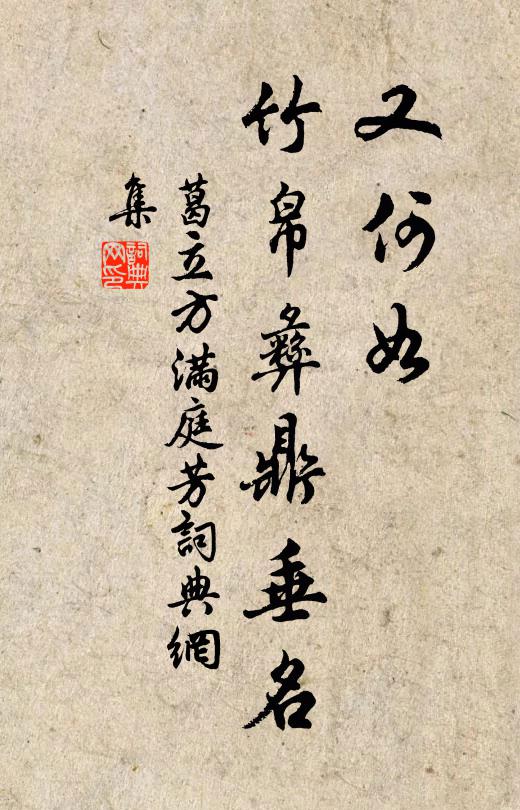 又何如
竹帛彝鼎垂名
葛立方满庭芳詞典網
集
詞典
网印